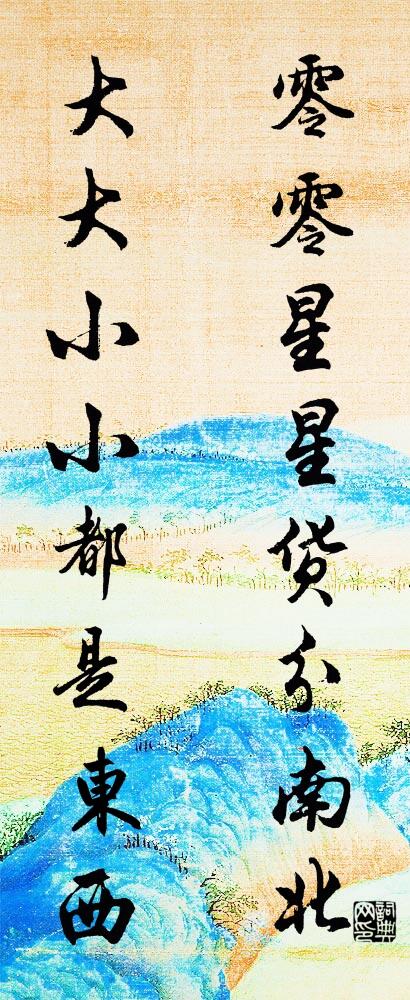 零零星星貨分南北
大大小小都是東西
詞典网印